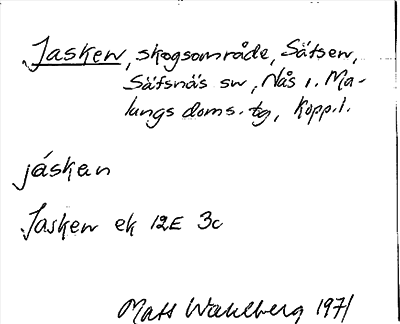 Jasken, skogsområde, Sätsen,
Säfsnäs sn, Nås o. Ma-
lungs doms. tg, Kopp. l.
jáskan
Jasken ek 12E 3c
Mats Wahlberg 1971